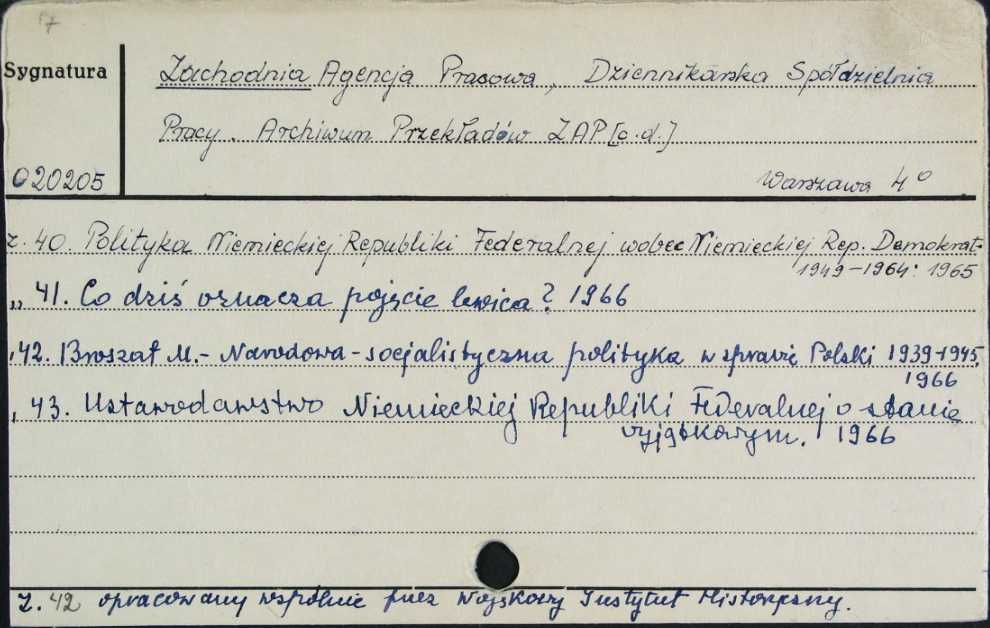 17
Sygnatura
Zachodnia Agencja Prasowa, Dziennikarska Spółdzielnia
Pracy. Archiwum Przekładów ZAP [c.d.]
020205
Warszawa 4°
z. 40. Polityka Niemieckiej Republiki Federalnej wobec Niemieckiej Rep. Demokrat.
1949-1964: 1965
„ 41. Co dziś oznacza pojęcie lewica? 1966
„ 42. Broszat M. - Narodowa-socjalistyczna polityka w sprawie Polski 1939-1945,
1966
„ 43. Ustawodawstwo Niemieckiej Republiki Federalnej o stanie
wyjątkowym. 1966
Z. 42 opracowany wspólnie przez Wojskowy Instytut Historyczny.